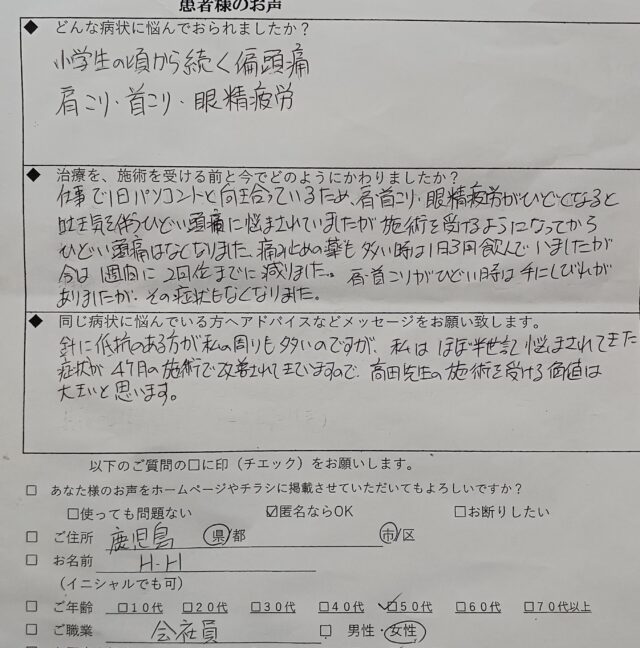 患者様のお声
◆ どんな病状に悩んでおられましたか？
小学生の頃から続く偏頭痛
肩こり・首こり・眼精疲労
◆ 治療を、施術を受ける前と今でどのようにかわりましたか？
仕事で1日パソコントと向き合っているため、肩・首こり・眼精疲労がひどくなると
吐き気を伴うひどい頭痛に悩まされていましたが施術を受けるようになってから
ひどい頭痛はなくなりました。痛み止めの薬も多い時は1日3回飲んでいましたが
今は1週間に2回位までに減りました。肩・首こりがひどい時は手にしびれが
ありましたが、その症状もなくなりました。
◆ 同じ病状に悩んでいる方へアドバイスなどメッセージをお願い致します。
針に抵抗のある方が私の周りも多いのですが、私はほぼ半世紀悩まされてきた
症状が4ケ月の施術で改善されてきていますので、高田先生の施術を受ける価値は
大きいと思います。
以下のご質問の□に印（チェック）をお願いします。
□ あなた様のお声をホームページやチラシに掲載させていただいてもよろしいですか？
□使っても問題ない ☑匿名ならOK □お断りしたい
□ ご住所 鹿児島 県/都 市/区
□ お名前 H.H
（イニシャルでも可）
□ ご年齢 □10代 □20代 □30代 □40代 ☑50代 □60代 □70代以上
□ ご職業 会社員 □ 男性・女性